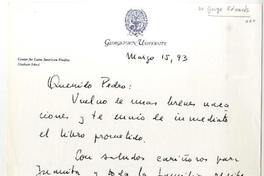 de Jorge Edwards
Georgetown University
Center for Latin American Studies
Graduate School
Marzo 15, 93
Querido Pedro:
Vuelvo de unas breves vaca
ciones y te envío de inmediate
el libro prometido.
Con saludos cariñosos para
Juanita y toda la familia, recibe